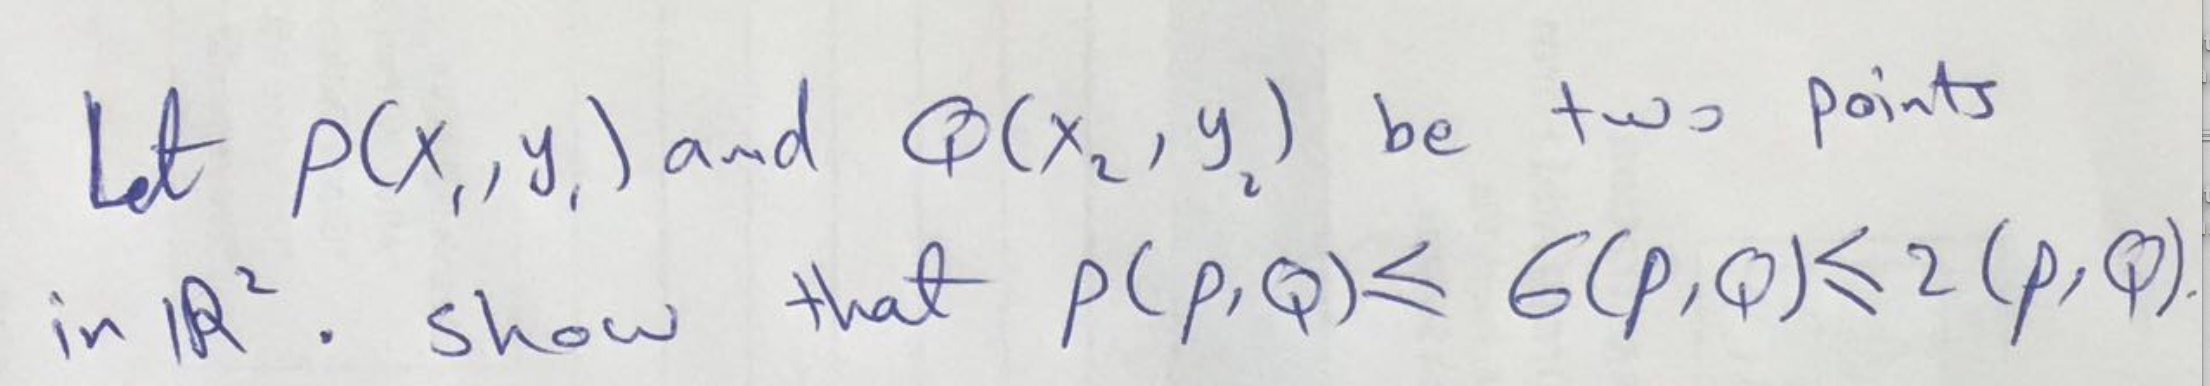 Let P(x₁, y₁) and Q(x₂, y₂) be two points
in ℝ². show that ρ(p,Q) ≤ 6(p,Q) ≤ 2(p,Q).